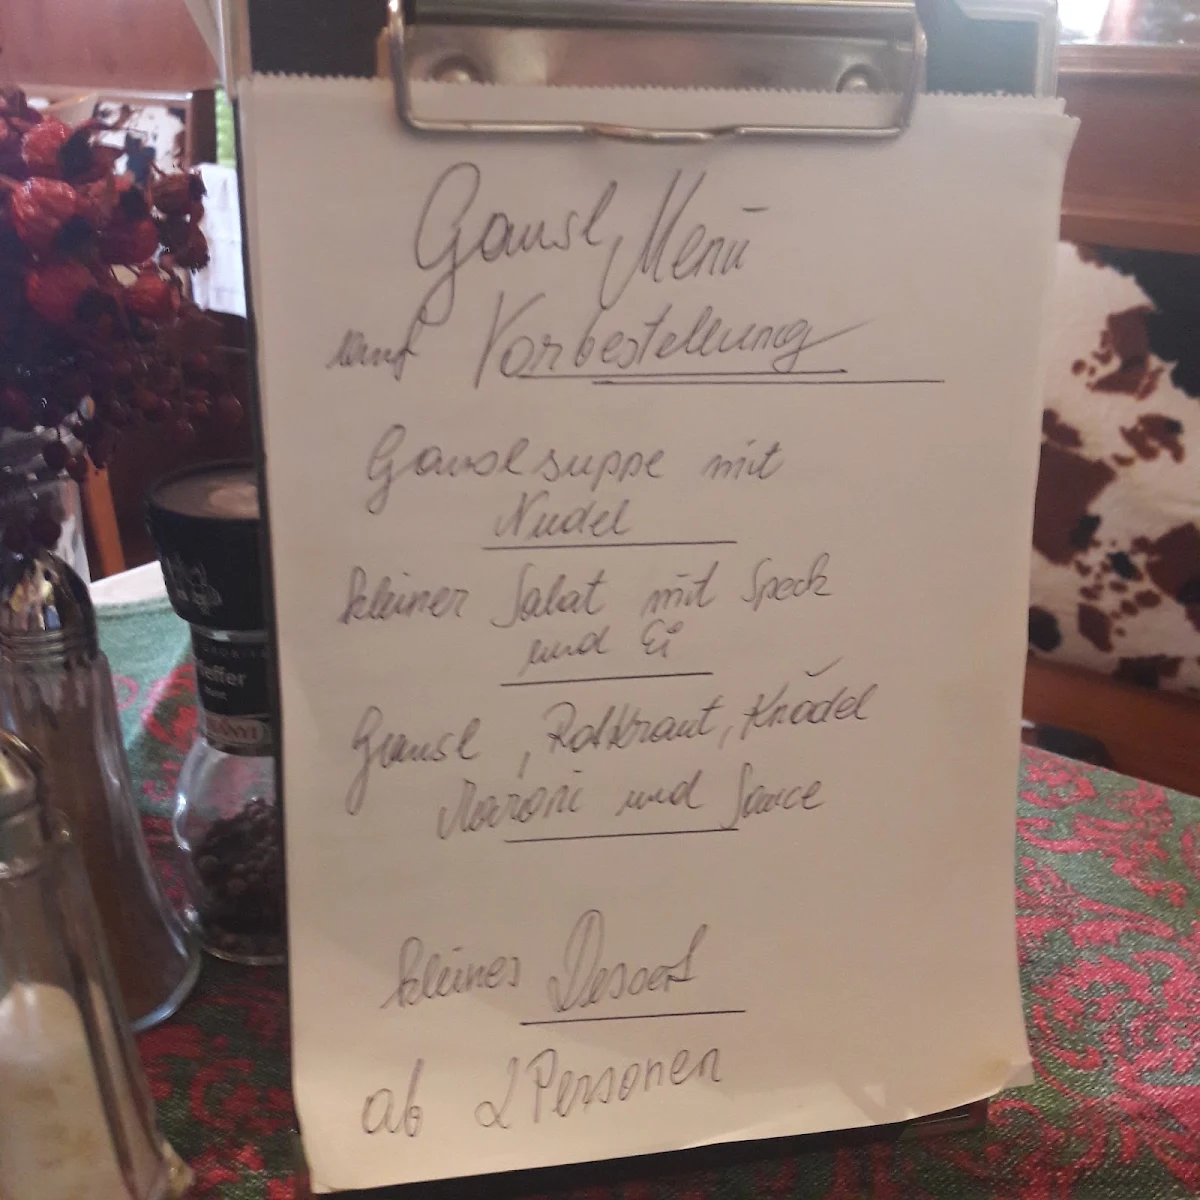 Gansl Menü
auf Vorbestellung
Ganslsuppe mit
Nudel
kleiner Salat mit Speck
und Ei
Gansl, Rotkraut, Knödel
Maroni und Sauce
kleines Desert
ab 2 Personen
effer
ÁNYI